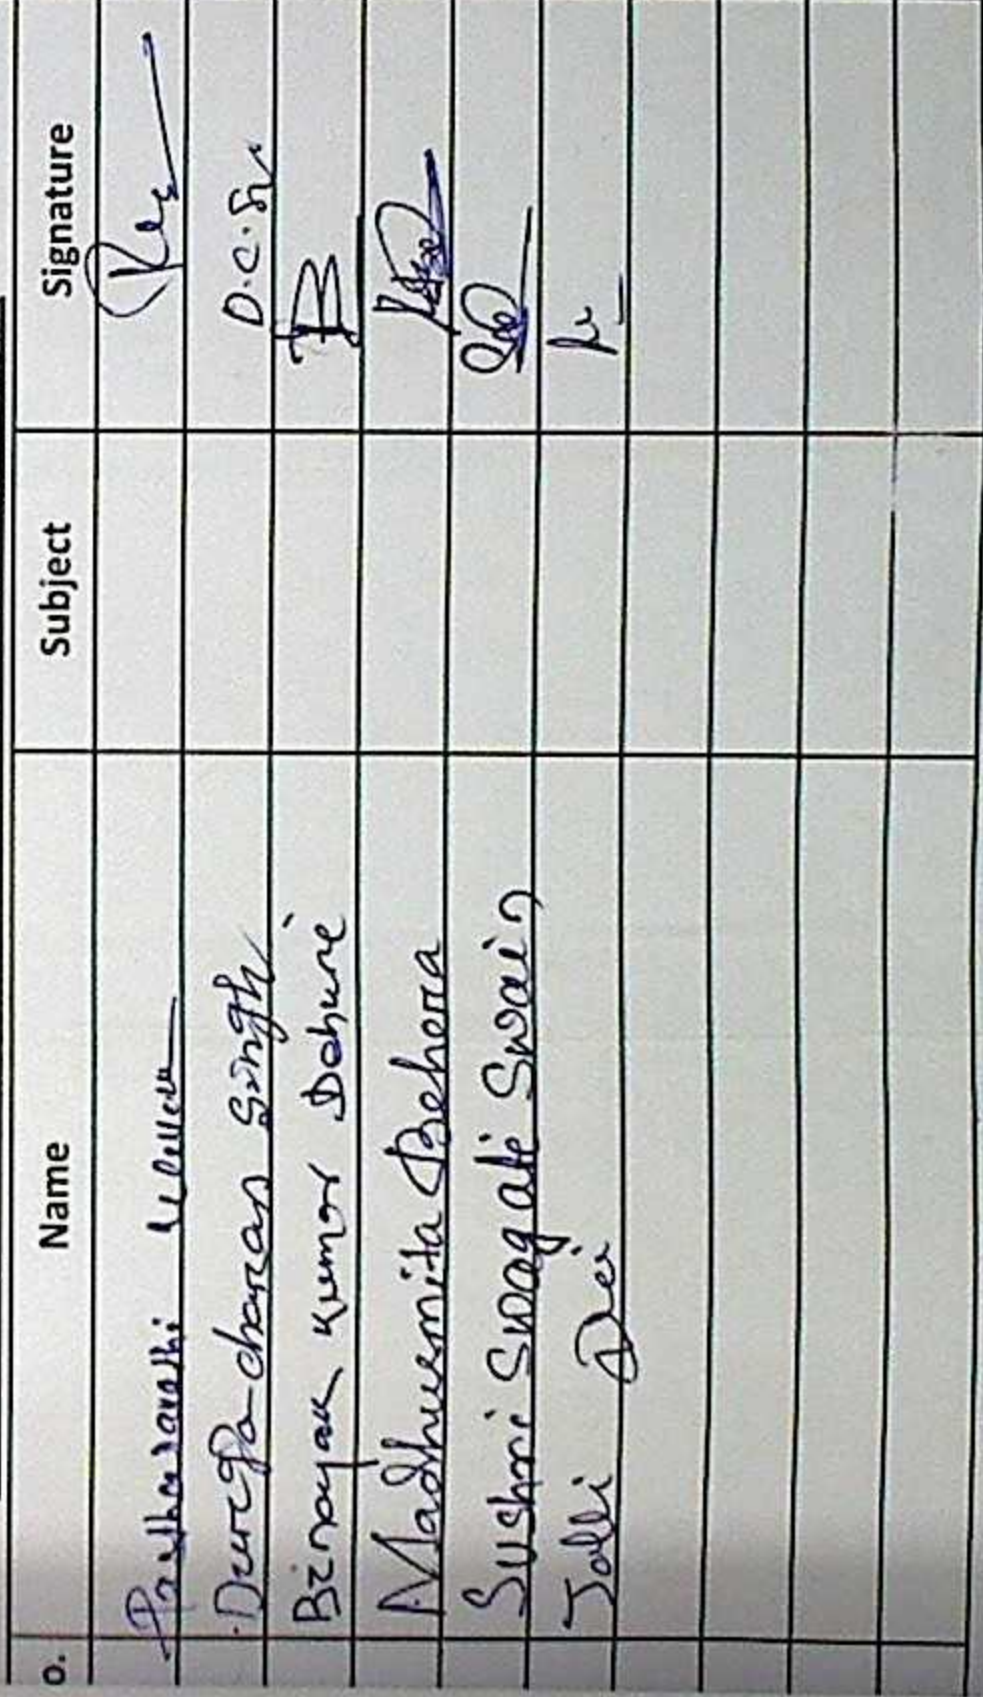 o. Name Subject Signature
Durga charan Singh D.C.Sn
Binayak Kumar Dehuri B
Madhusmita Behera
Sushri Swagati Swain
Jolli Dei